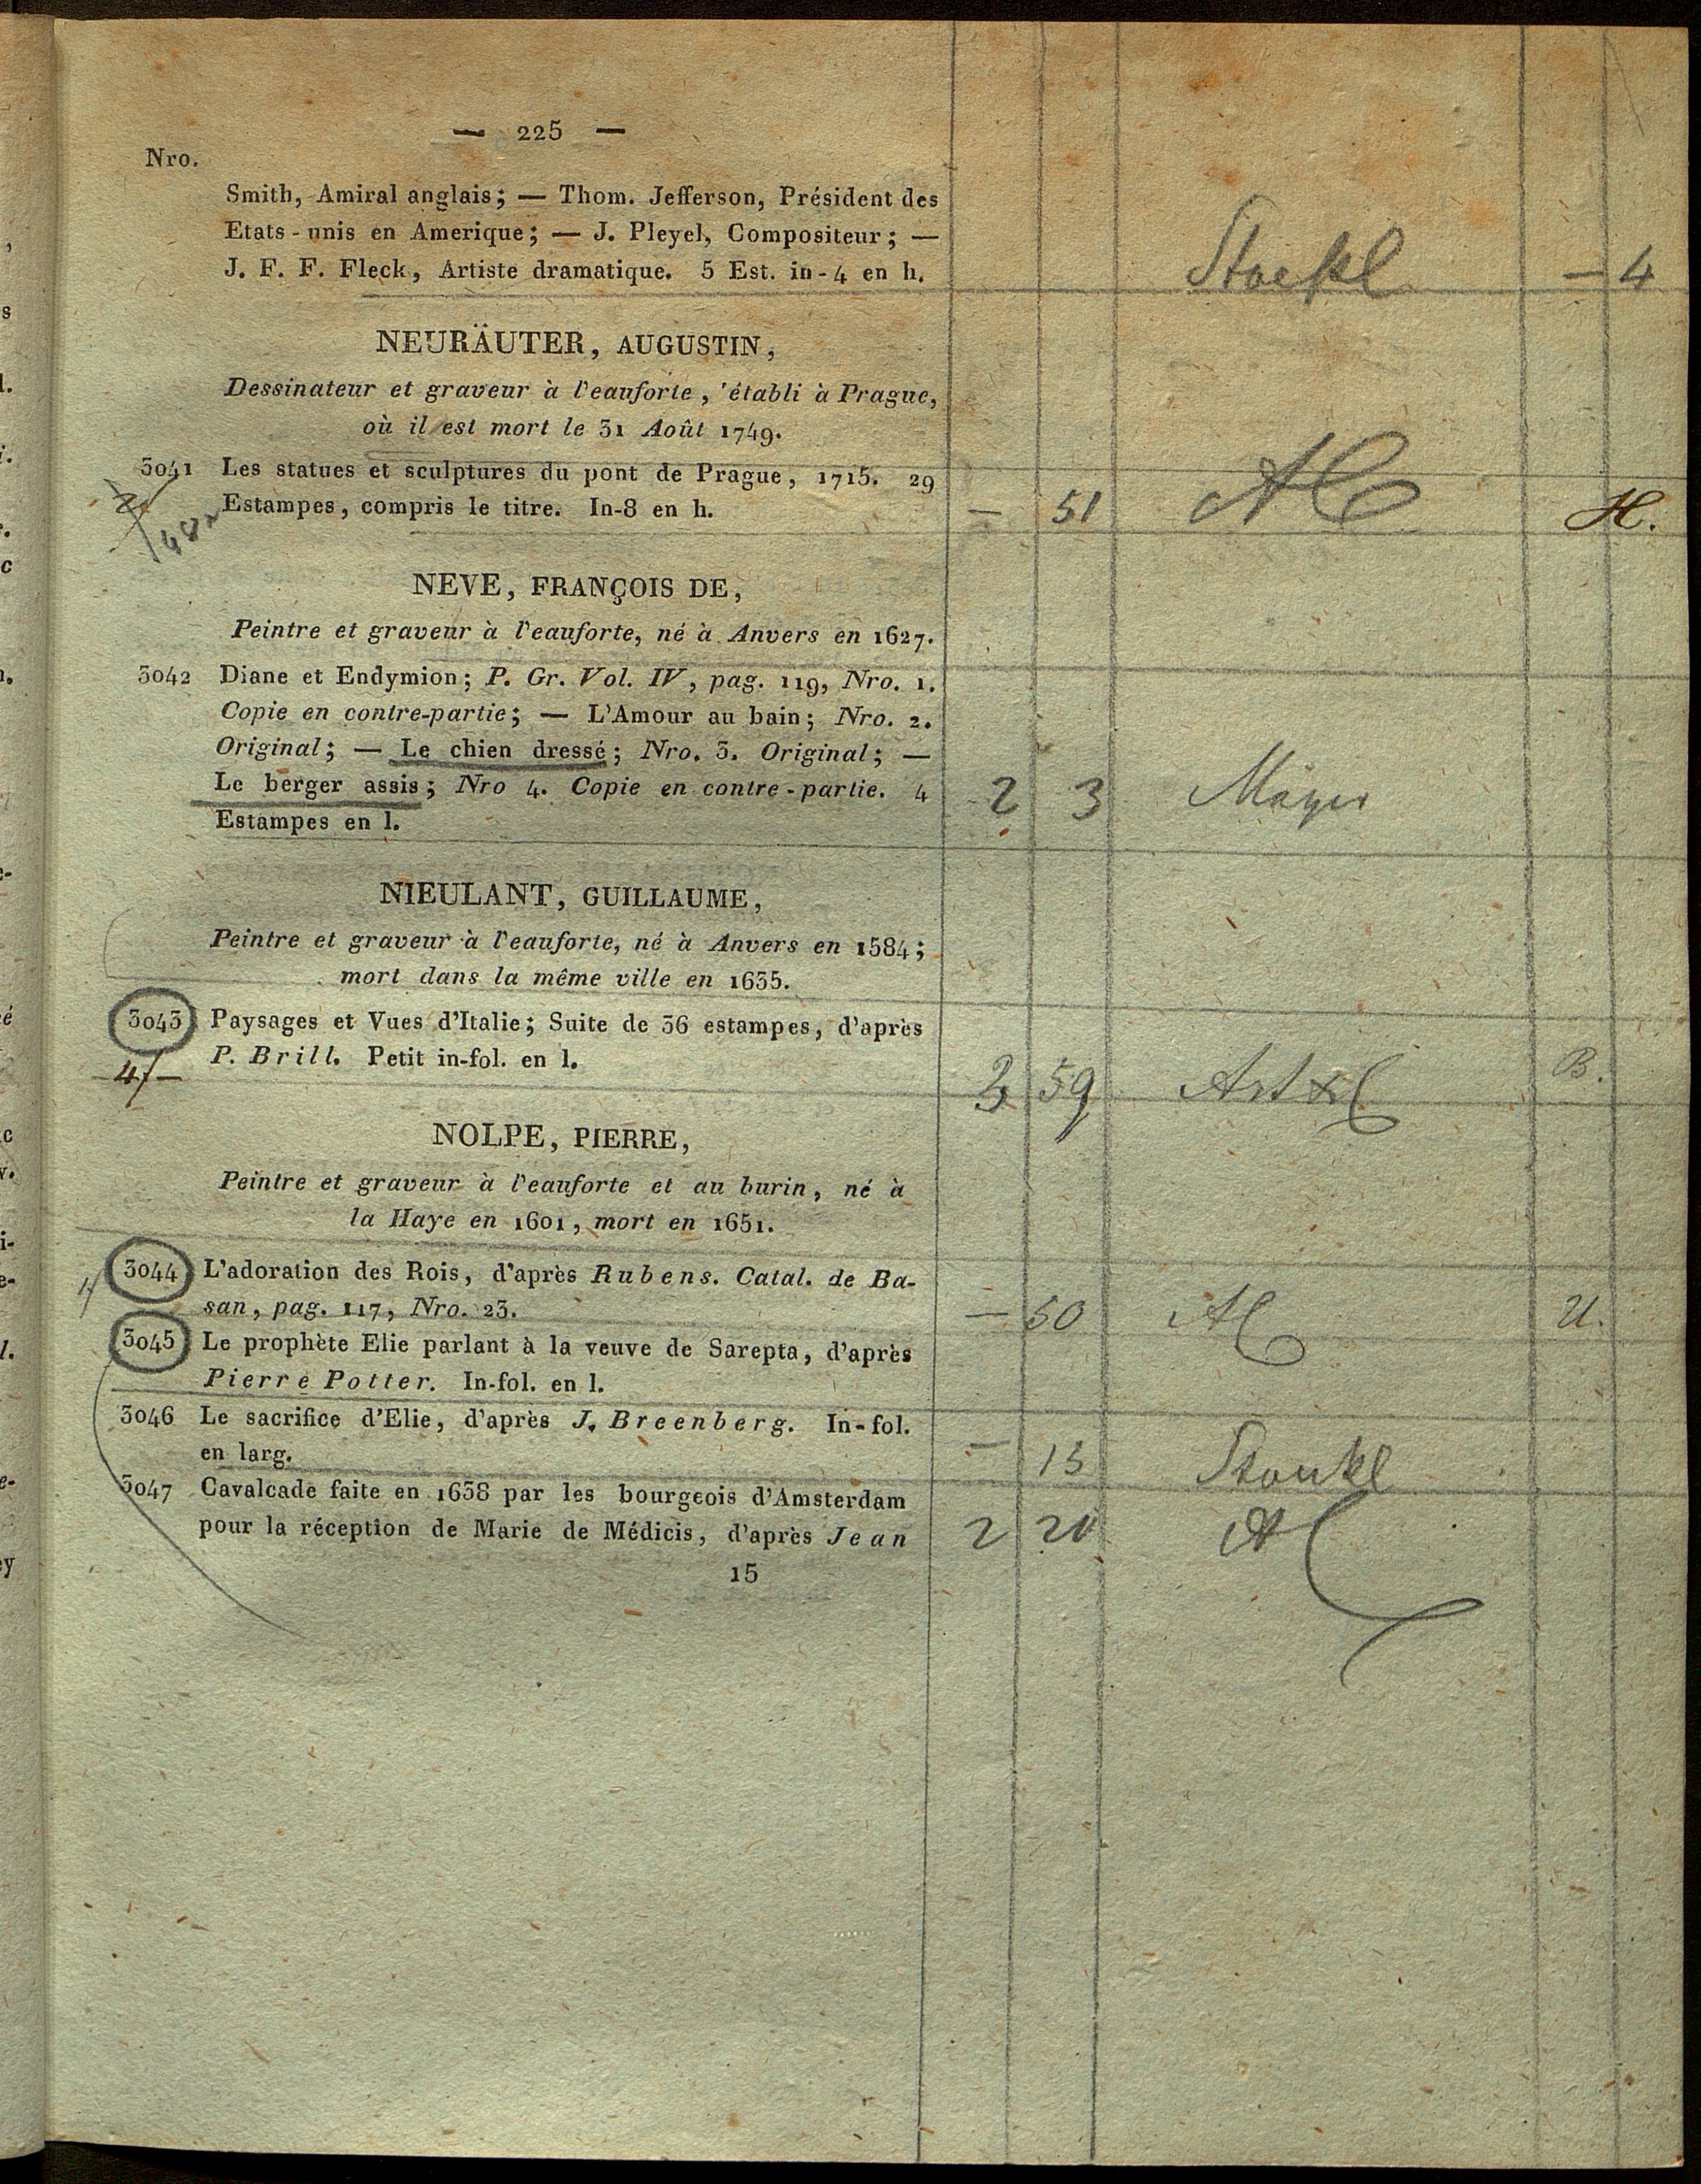 — 225 —
Nro.
Smith, Amiral anglais; — Thom. Jefferson, Président des
Etats-unis en Amerique; — J. Pleyel, Compositeur; —
J. F. F. Fleck, Artiste dramatique. 5 Est. in-4 en h.
— 4
NEURÄUTER, AUGUSTIN,
Dessinateur et graveur à l'eauforte, établi à Prague,
où il est mort le 31 Août 1749.
3041 Les statues et sculptures du pont de Prague, 1715. 29
Estampes, compris le titre. In-8 en h.
— 51 H.
NEVE, FRANÇOIS DE,
Peintre et graveur à l'eauforte, né à Anvers en 1627.
3042 Diane et Endymion; P. Gr. Vol. IV, pag. 119, Nro. 1.
Copie en contre-partie; — L'Amour au bain; Nro. 2.
Original; — Le chien dressé; Nro. 3. Original; —
Le berger assis; Nro 4. Copie en contre-partie. 4
2 3
Estampes en l.
NIEULANT, GUILLAUME,
Peintre et graveur à l'eauforte, né à Anvers en 1584;
mort dans la même ville en 1635.
3043 Paysages et Vues d'Italie; Suite de 36 estampes, d'après
P. Brill. Petit in-fol. en l.
4/— 3 59 B.
NOLPE, PIERRE,
Peintre et graveur à l'eauforte et au burin, né à
la Haye en 1601, mort en 1651.
3044 L'adoration des Rois, d'après Rubens. Catal. de Ba-
san, pag. 117, Nro. 23.
— 50 U.
3045 Le prophète Elie parlant à la veuve de Sarepta, d'après
Pierre Potter. In-fol. en l.
3046 Le sacrifice d'Elie, d'après J. Breenberg. In-fol.
en larg.
3047 Cavalcade faite en 1638 par les bourgeois d'Amsterdam
pour la réception de Marie de Médicis, d'après Jean
15